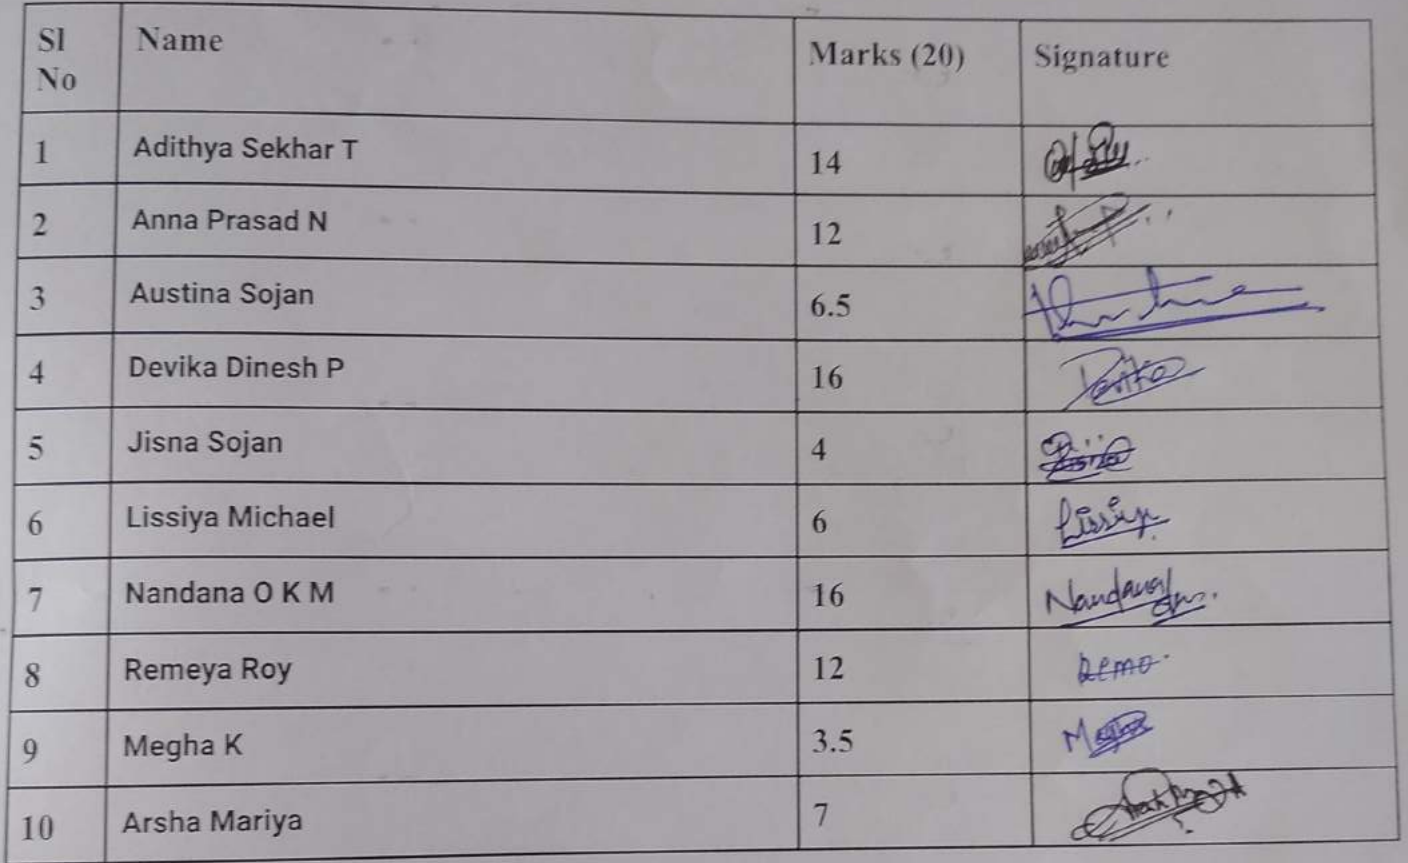 Sl No Name Marks (20) Signature
1 Adithya Sekhar T 14
2 Anna Prasad N 12
3 Austina Sojan 6.5
4 Devika Dinesh P 16 Devika
5 Jisna Sojan 4
6 Lissiya Michael 6 Lissiya
7 Nandana O K M 16 Nandana
8 Remeya Roy 12 Remo
9 Megha K 3.5 Megha
10 Arsha Mariya 7